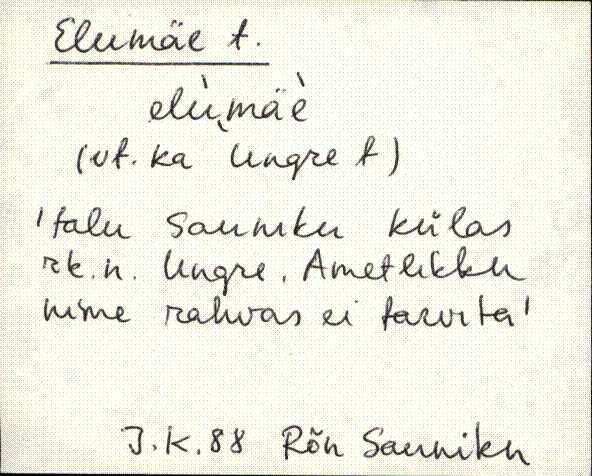 Elumäe t.
elùmäè
(vt. ka Ungre t)
'talu Sauniku külas
rk. n. Ungre. Ametlikku
nime rahvas ei tarvita'
J.K. 88 Rõn Sauniku